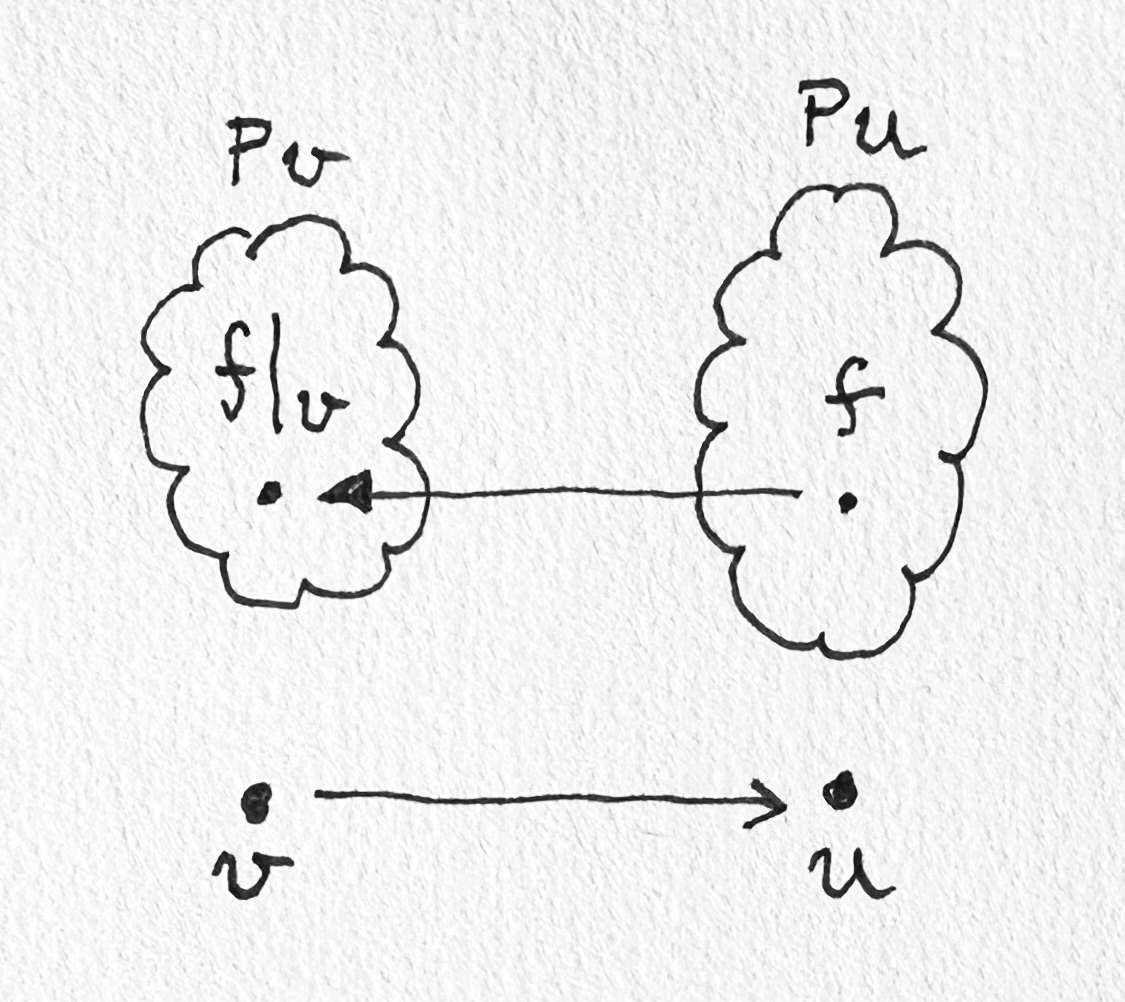 Pv
Pu
f|v
f
v
u